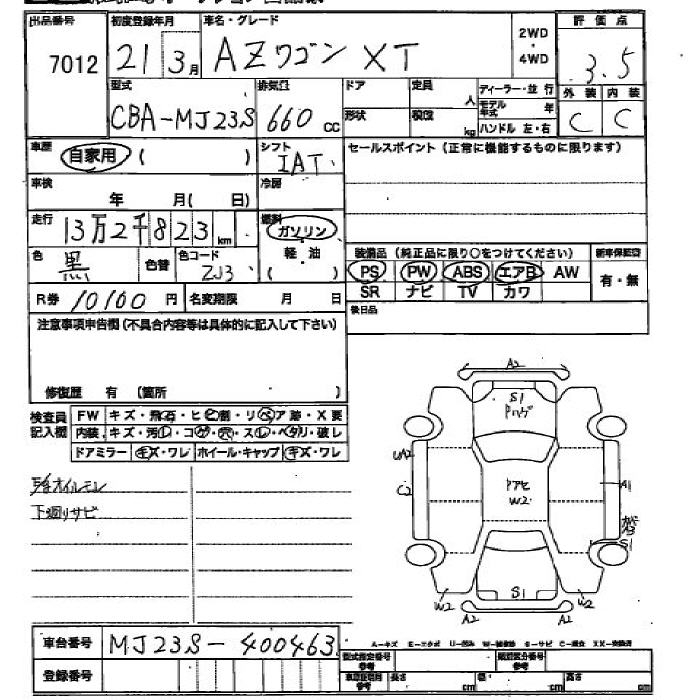 出品番号 初度登録年月 車名・グレード 2WD ・ 4WD 評価点
7012 21 3月 AZワゴン XT 3.5
型式 排気量 ドア 定員 人 ディーラー・並行 外装 内装
CBA-MJ23S 660 cc 形状 積荷 kg モデル年式 年 C C
ハンドル 左・右
車歴 自家用 ( ) シフト セールスポイント (正常に機能するものに限ります)
IAT
車検 年 月( 日) 冷房
走行 13万2千823 km 燃料 ガソリン
色 黒 色替 色コード ZJ3 軽油 ( )
装備品 (純正品に限り○をつけてください) 新車保証書
PS PW ABS エアB AW 有・無
SR ナビ TV カワ
R券 10160 円 名変期限 月 日 後日品
注意事項申告欄 (不具合内容等は具体的に記入して下さい)
修復歴 有 (箇所 )
検査員記入欄 FW キズ・飛石・ヒビ割・リペア跡・X要
内装 キズ・汚レ・コゲ・穴・スレ・ベタリ・破レ
ドアミラー キズ・ワレ ホイール・キャップ キズ・ワレ
オイルモレ
下廻りサビ
A2
S1
UA2
C2
W2
A1
S1
S1
W2 W2
A2 A2
車台番号 MJ23S-400463
A-キズ E-エクボ U-凹み W-補修跡 S-サビ C-腐食 XX-交換済
登録番号 型式指定番号 参考 類別区分番号 参考
長さ cm 幅 cm 高さ cm